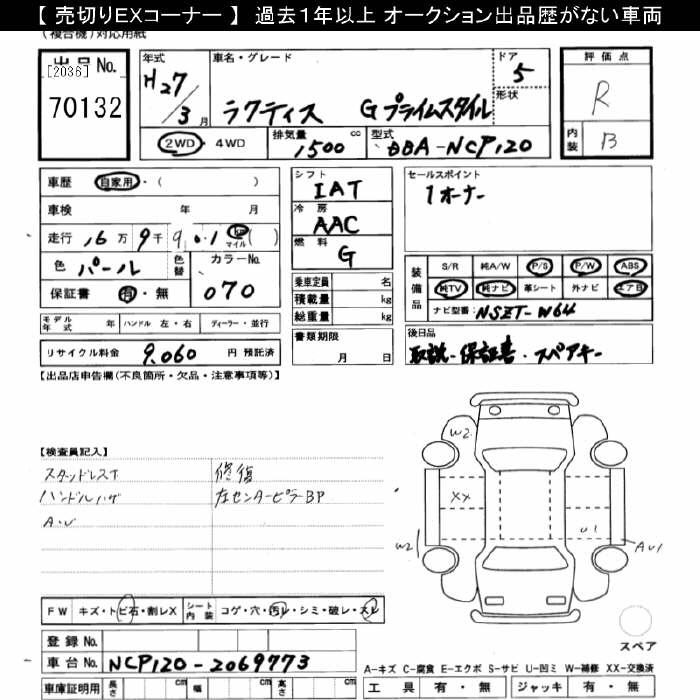 【 売切りEXコーナー 】 過去1年以上 オークション出品歴がない車両
(複合機)対応用紙
出品No. [2036] 70132
年式 H27/3月
車名・グレード ラクティス Gプライムスタイル
ドア 5
形状
2WD・4WD
排気量 1500 cc
型式 DBA-NCP120
評価点 R
内装 B
車歴 自家用・( )
車検 年 月
走行 16万9千901 km マイル ( )
色 パール 色替
カラーNo. 070
保証書 有・無
モデル年式 年 ハンドル 左・右 ディーラー・並行
リサイクル料金 9,060 円 預託済
シフト IAT
冷房 AAC
燃料 G
乗車定員 名
積載量 kg
総重量 kg
書類期限 月 日
セールスポイント
1オーナー
装備品 S/R 純A/W P/S P/W ABS
純TV 純ナビ 革シート 外ナビ エア日
ナビ型番: NSZT-W64
後日品
取説・保証書・スペアキー
【出品店申告欄(不良箇所・欠品・注意事項等)】
【検査員記入】
ハンドルハゲ
A・U
修復
左センターピラーBP
W2
XX
U1
W2
AU1
FW キズ・トビ石・割レX シート内装 コゲ・穴・汚レ・シミ・破レ・スレ
登録No.
車台No. NCP120-2069773
車庫証明用 長さ cm 幅 cm 高さ cm
スペア
A-キズ C-腐食 E-エクボ S-サビ U-凹ミ W-補修 XX-交換済
工具 有・無 ジャッキ 有・無